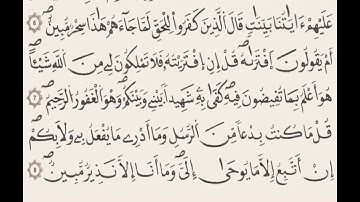 عَلَيْهِمُۥٓ ءَايَٰتُنَا بَيِّنَٰتٖ قَالَ ٱلذِينَ كَفَرُواْ لِلْحَقِّ لَمَّا جَآءَهُمْ هَٰذَا سِحْرٞ مُّبِينٌۖ 6
أَمْ يَقُولُونَ اَ۪فْتَر۪يٰهُۖ قُلِ اِنِ اِ۪فْتَرَيْتُهُۥ فَلَا تَمْلِكُونَ لِے مِنَ اَ۬للَّهِ شَيْـٔاًۖ
هُوَ أَعْلَمُ بِمَا تُفِيضُونَ فِيهِۖ كَف۪ىٰ بِهِۦ شَهِيداَۢ بَيْنِے وَبَيْنَكُمْۖ وَهُوَ اَ۬لْغَفُورُ اُ۬لرَّحِيمُۖ 7
قُلْ مَا كُنتُ بِدْعاٗ مِّنَ اَ۬لرُّسُلِ وَمَآ أَدْرِے مَا يُفْعَلُ بِے وَلَا بِكُمُۥٓۖ
إِنَ اَتَّبِعُ إِلَّا مَا يُوح۪ىٰٓ إِلَيَّۖ وَمَآ أَنَا إِلَّا نَذِيرٞ مُّبِينٞۖ 8